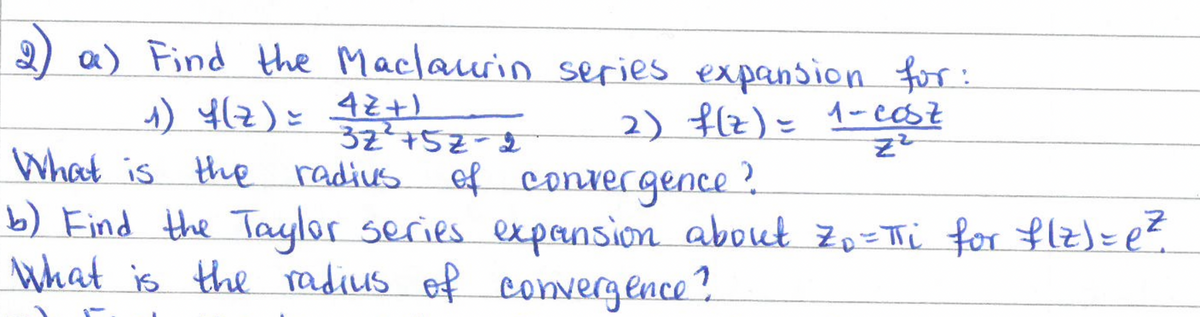 2) a) Find the Maclaurin series expansion for:
1) f(z) = (4z+1)/(3z²+5z-2) 2) f(z) = (1-cosz)/z²
What is the radius of convergence?
b) Find the Taylor series expansion about z₀=πi for f(z)=e^z.
What is the radius of convergence?